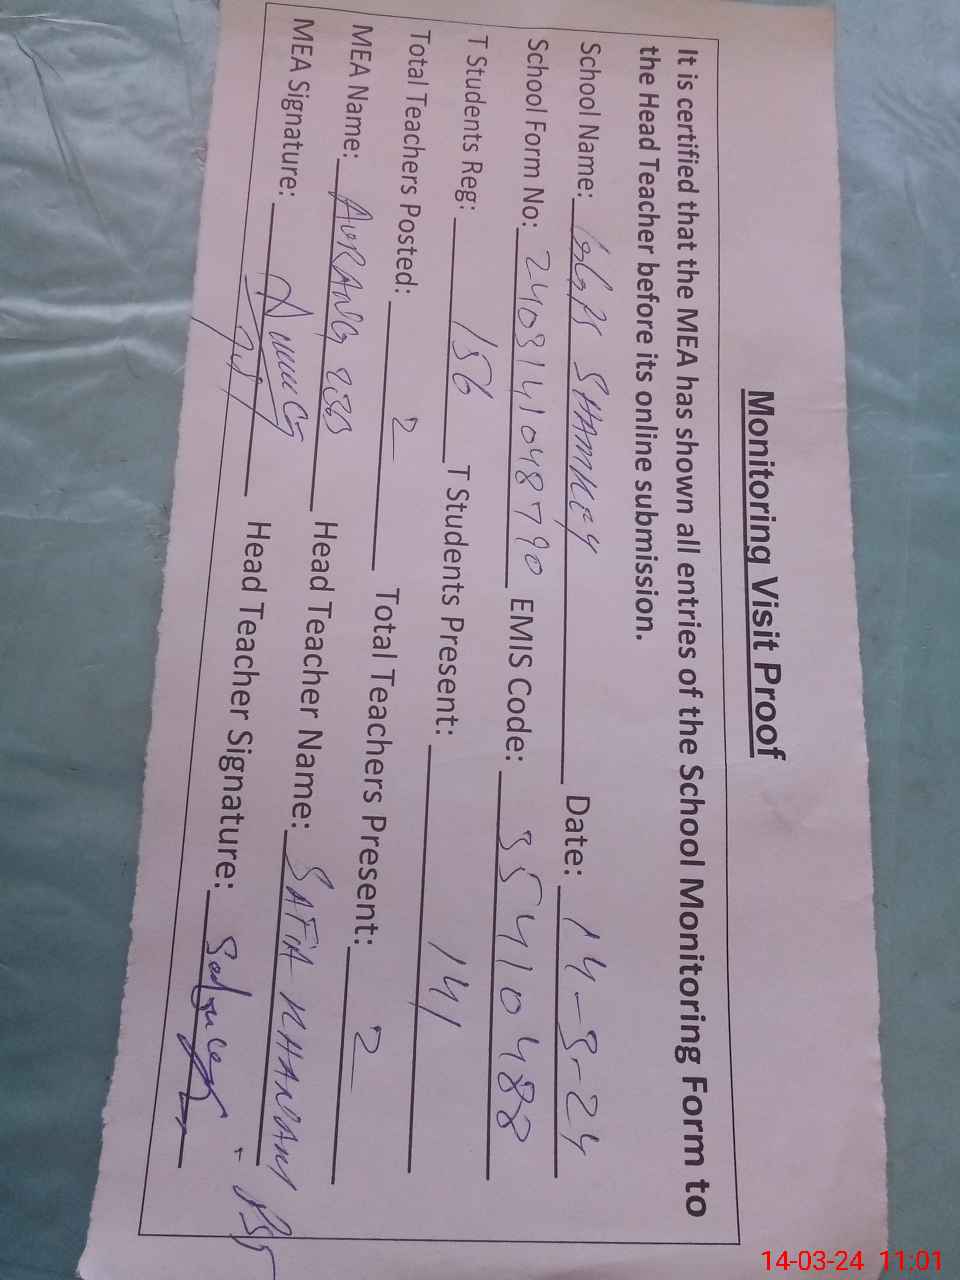 Monitoring Visit Proof
It is certified that the MEA has shown all entries of the School Monitoring Form to
the Head Teacher before its online submission.
School Name: SHAMKEY Date: 14-3-24
School Form No: 2403141048790 EMIS Code: 35410488
T Students Reg: 156 T Students Present: 141
Total Teachers Posted: 2 Total Teachers Present: 2
MEA Name: AURANG ZEB Head Teacher Name: SAFIA KHANAM PST
MEA Signature: Head Teacher Signature:
14-03-24 11:01